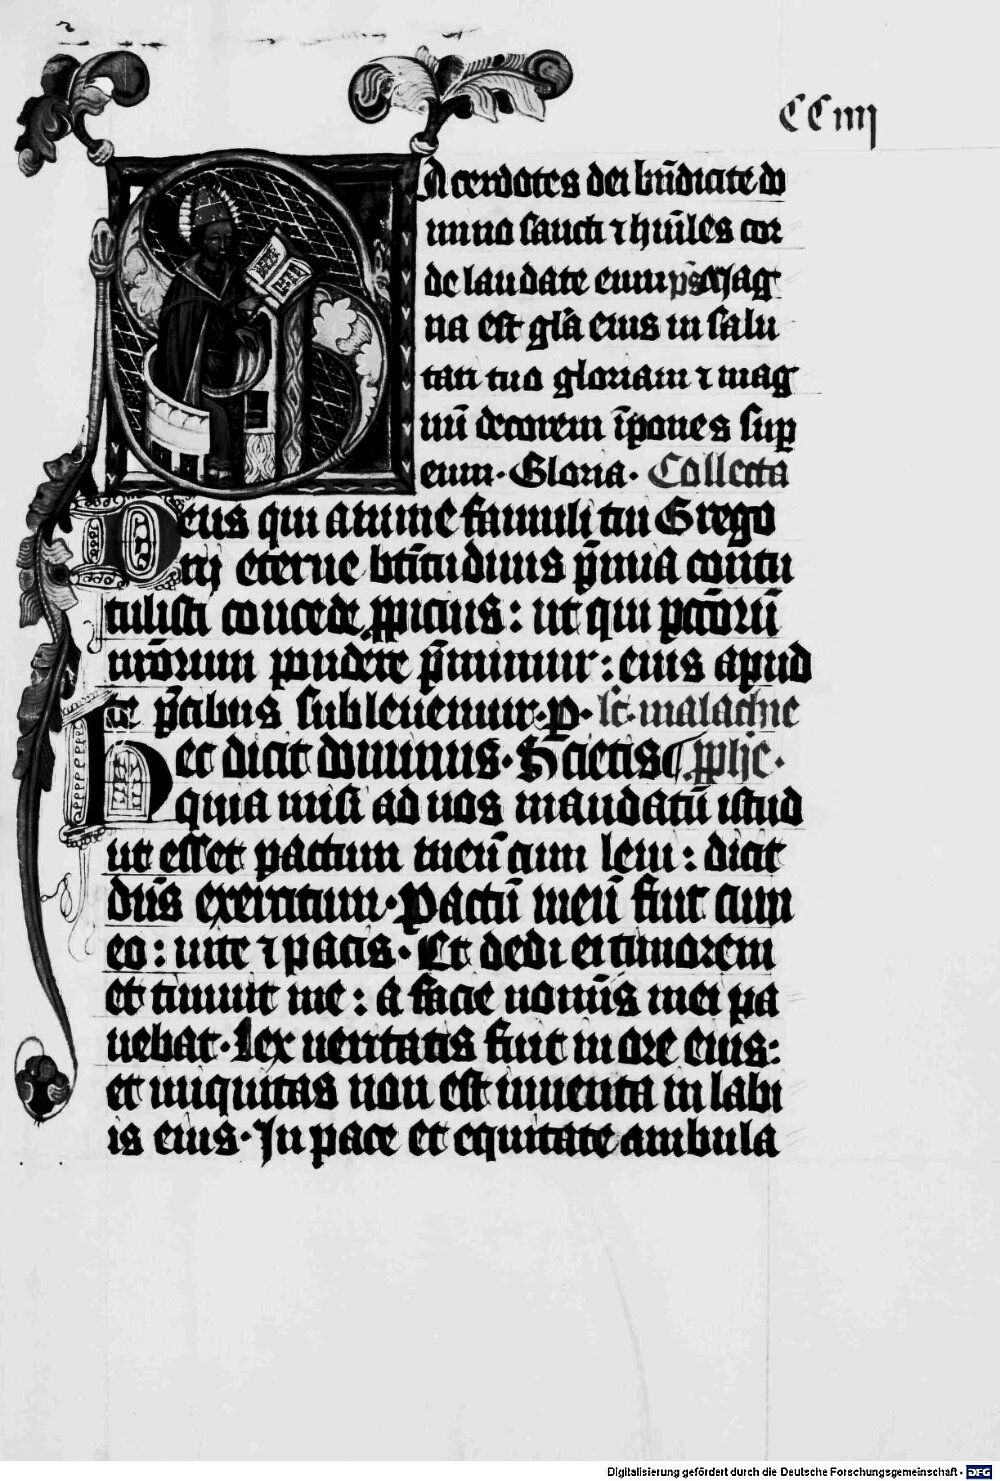 CCiiij
SAcerdotes dei bn̄dicite do
mino sancti ⁊ hūiles cor
de laudate eum ps̄ Mag
na est glīa eius in salu
tari tuo gloriam ⁊ mag
nū decorem īpones sup̄
eum · Gloria · Collecta
Deus qui anime famuli tui Grego
rij eterne btītudinis p̄mia contu
tulisti concede ꝓpicius : ut qui pctōrū
nr̄orum pondere p̄mimur : eius apud
te p̄cibus subleuemur · p · lc̄ malachie
Hec dicit dominus · Scietis ꝓphe ·
quia misi ad uos mandatū istud
ut esset pactum meū cum leui : dicit
dn̄s exercituum · Pactū meū fuit cum
eo : uite ⁊ pacis · Et dedi ei timorem
et timuit me : a facie nomīs mei pa
uebat · Lex ueritatis fuit in ore eius :
et iniquitas non est inuenta in labi
is eius · In pace et equitate ambula
Digitalisierung gefördert durch die Deutsche Forschungsgemeinschaft - DFG